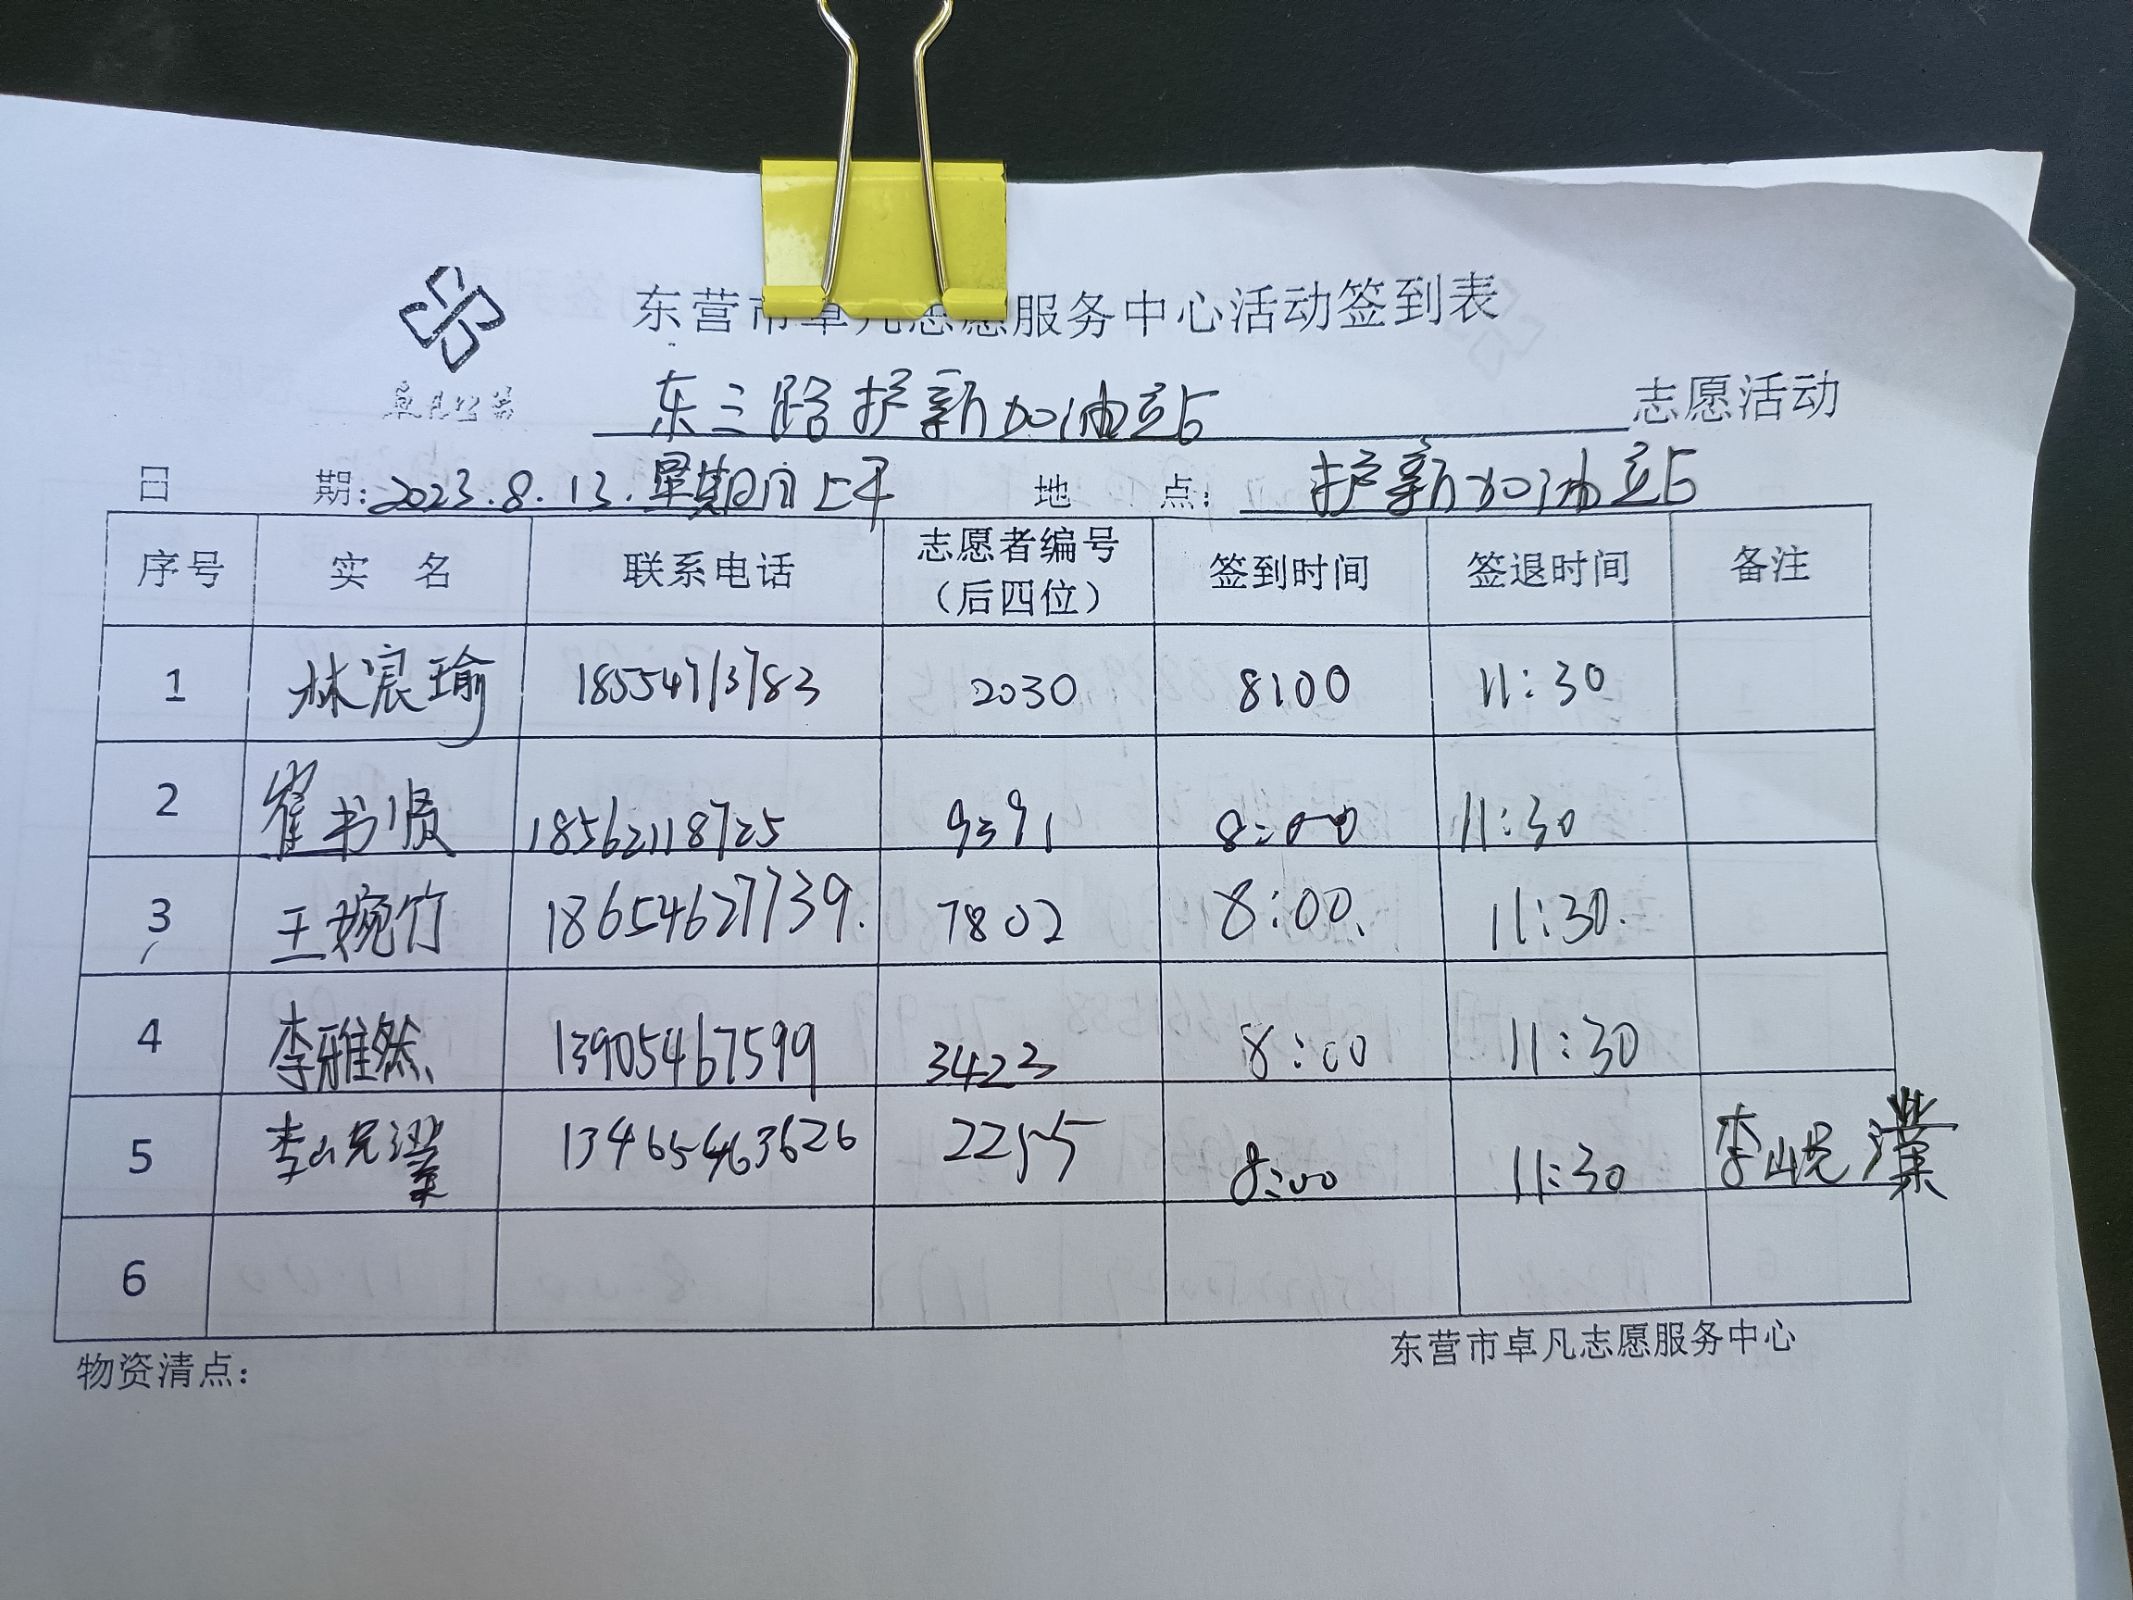 东营市卓凡志愿服务中心活动签到表
卓凡公益
东三路护新加油站 志愿活动
日 期: 2023.8.13.星期日上午 地 点: 护新加油站
序号 实 名 联系电话 志愿者编号(后四位) 签到时间 签退时间 备注
1 林宸瑜 18554713783 2030 8:00 11:30
2 崔书贤 18562118725 9391 8:00 11:30
3 王婉竹 18654627739. 7802 8:00. 11:30.
4 李雅然 13905467599 3423 8:00 11:30
5 李 13465463626 2255 8:00 11:30 李
6
物资清点: 东营市卓凡志愿服务中心